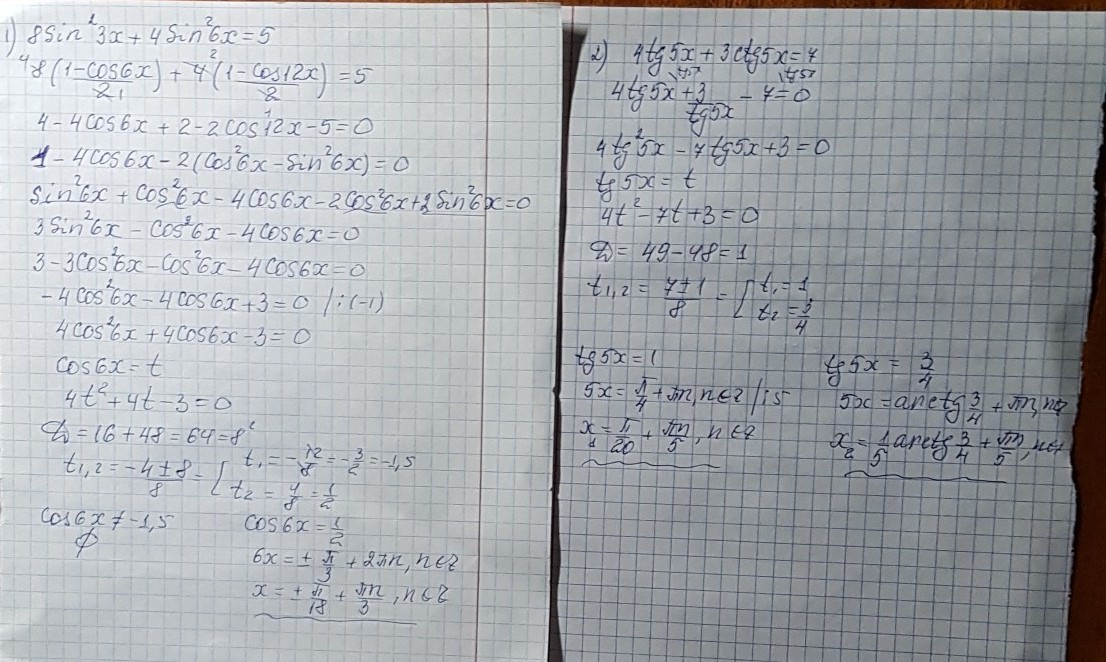 1) 8sin²3x + 4sin²6x = 5
⁴8(1-cos6x)/2₁ + 4²(1-cos12x)/2₁ = 5
4 - 4cos6x + 2 - 2cos12x - 5 = 0
1 - 4cos6x - 2(cos²6x - sin²6x) = 0
sin²6x + cos²6x - 4cos6x - 2cos²6x + 2sin²6x = 0
3sin²6x - cos²6x - 4cos6x = 0
3 - 3cos²6x - cos²6x - 4cos6x = 0
-4cos²6x - 4cos6x + 3 = 0 /:(-1)
4cos²6x + 4cos6x - 3 = 0
cos6x = t
4t² + 4t - 3 = 0
D = 16 + 48 = 64 = 8²
t₁,₂ = (-4 ± 8)/8 = [ t₁ = -12/8 = -3/2 = -1,5
t₂ = 4/8 = 1/2
cos6x ≠ -1,5
∅
cos6x = 1/2
6x = ± π/3 + 2πn, n∈Z
x = ± π/18 + πn/3, n∈Z
2) 4tg5x + 3ctg5x = 7
4tg5x + 3/tg5x - 7 = 0
4tg²5x - 7tg5x + 3 = 0
tg5x = t
4t² - 7t + 3 = 0
D = 49 - 48 = 1
t₁,₂ = (7 ± 1)/8 = [ t₁ = 1
t₂ = 3/4
tg5x = 1
5x = π/4 + πn, n∈Z /:5
x₁ = π/20 + πn/5, n∈Z
tg5x = 3/4
5x = arctg 3/4 + πn, n∈Z
x₂ = 1/5 arctg 3/4 + πn/5, n∈Z